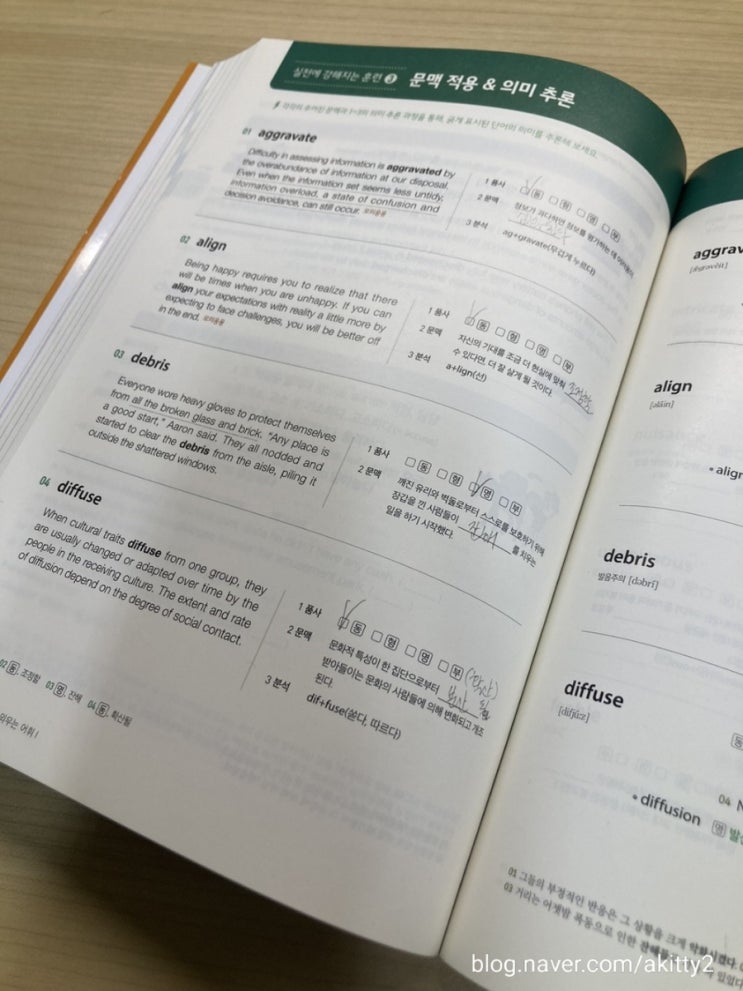 실전에 강해지는 훈련 3 문맥 적용 & 의미 추론
각각의 주어진 문맥과 1~3의 의미 추론 과정을 통해, 굵게 표시된 단어의 의미를 추론해 보세요.
01 aggravate
Difficulty in assessing information is aggravated by
the overabundance of information at our disposal.
Even when the information set seems less untidy,
information overload, a state of confusion and
decision avoidance, can still occur. 모의응용
1 품사 동 형 명 부
2 문맥 정보가 과다하면 정보를 평가하는 데 어려움이
3 분석 ag+gravate(무겁게 누르다)
02 align
Being happy requires you to realize that there
will be times when you are unhappy. If you can
align your expectations with reality a little more by
expecting to face challenges, you will be better off
in the end. 모의응용
1 품사 동 형 명 부
2 문맥 자신의 기대를 조금 더 현실에 맞춰 조정할
수 있다면, 더 잘 살게 될 것이다.
3 분석 a+lign(선)
03 debris
Everyone wore heavy gloves to protect themselves
from all the broken glass and brick. “Any place is
a good start,” Aaron said. They all nodded and
started to clear the debris from the aisle, piling it
outside the shattered windows.
1 품사 동 형 명 부
2 문맥 깨진 유리와 벽돌로부터 스스로를 보호하기 위해
장갑을 낀 사람들이 잔해 를 치우는
일을 하기 시작했다.
04 diffuse
When cultural traits diffuse from one group, they
are usually changed or adapted over time by the
people in the receiving culture. The extent and rate
of diffusion depend on the degree of social contact.
1 품사 동 형 명 부 (확산)
2 문맥 문화적 특성이 한 집단으로부터 분산 될 때,
받아들이는 문화의 사람들에 의해 변화되고 개조
된다.
3 분석 dif+fuse(쏟다, 따르다)
02 동, 조정할 03 명, 잔해 04 동, 확산될
외우는 어휘!
aggrav
[ǽgrəvèit]
align
[əláin]
align
debris
발음주의 [dəbríː]
diffuse
[difjúːz]
04
diffusion 명
01 그들의 부정적인 반응은 그 상황을 크게 악화시켰다.
03 거리는 어젯밤 폭동으로 인한 잔해
blog.naver.com/akitty2